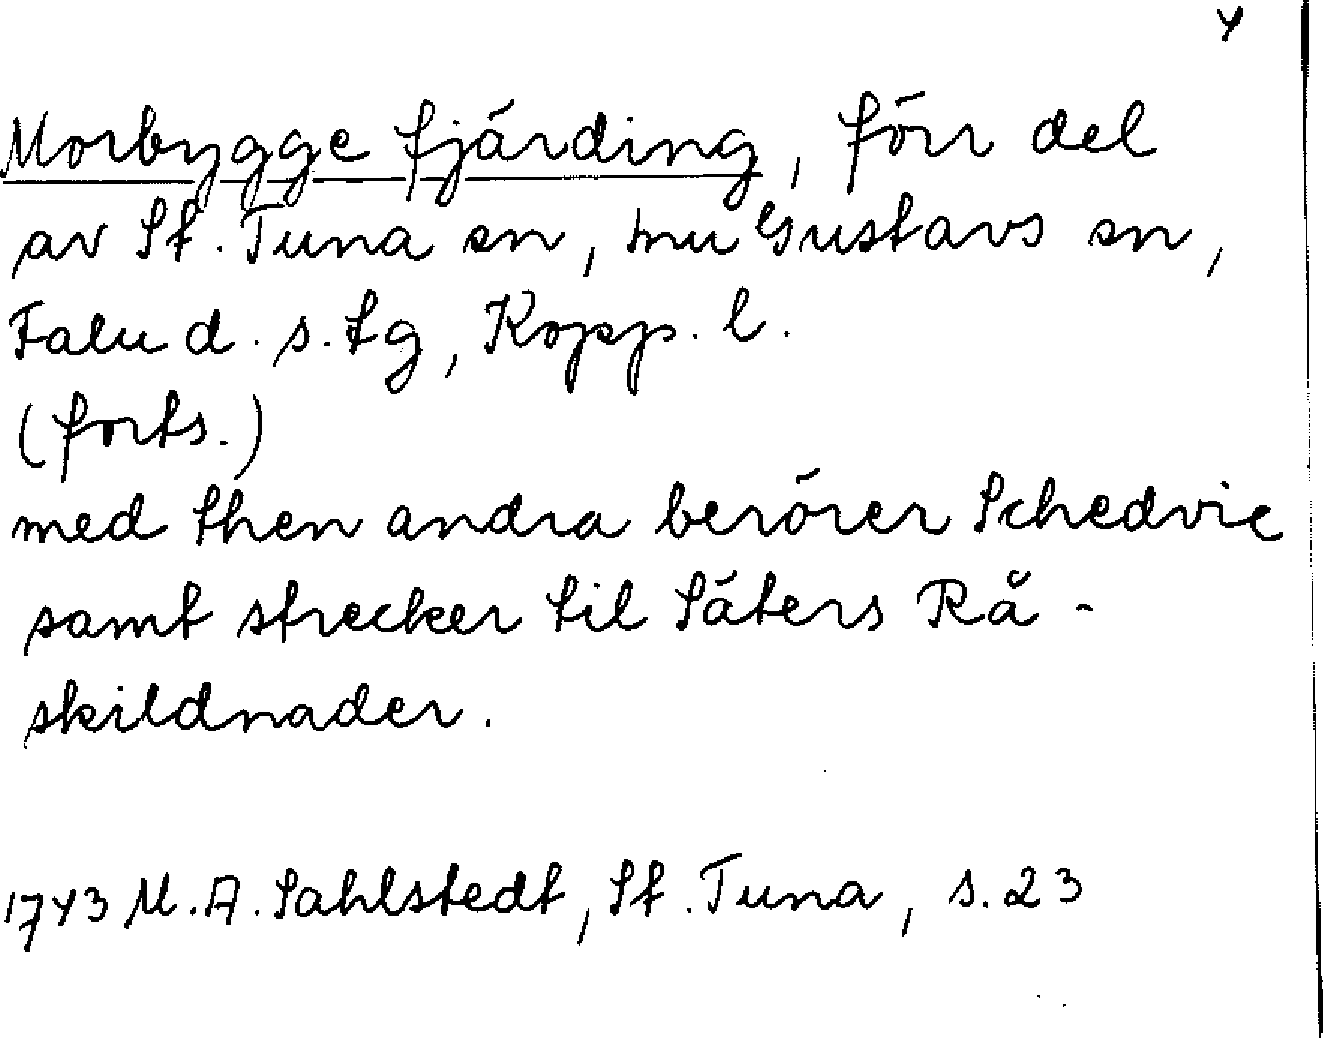 4
Morbygge fjärding, förr del
av St. Tuna sn, nu Gustavs sn,
Falu d. s. tg, Kopp. l.
(forts.)
med then andra berörer Schedvic
samt strecker til Säters Rå-
skildnader.
1743 M. A. Sahlstedt, St. Tuna, s. 23